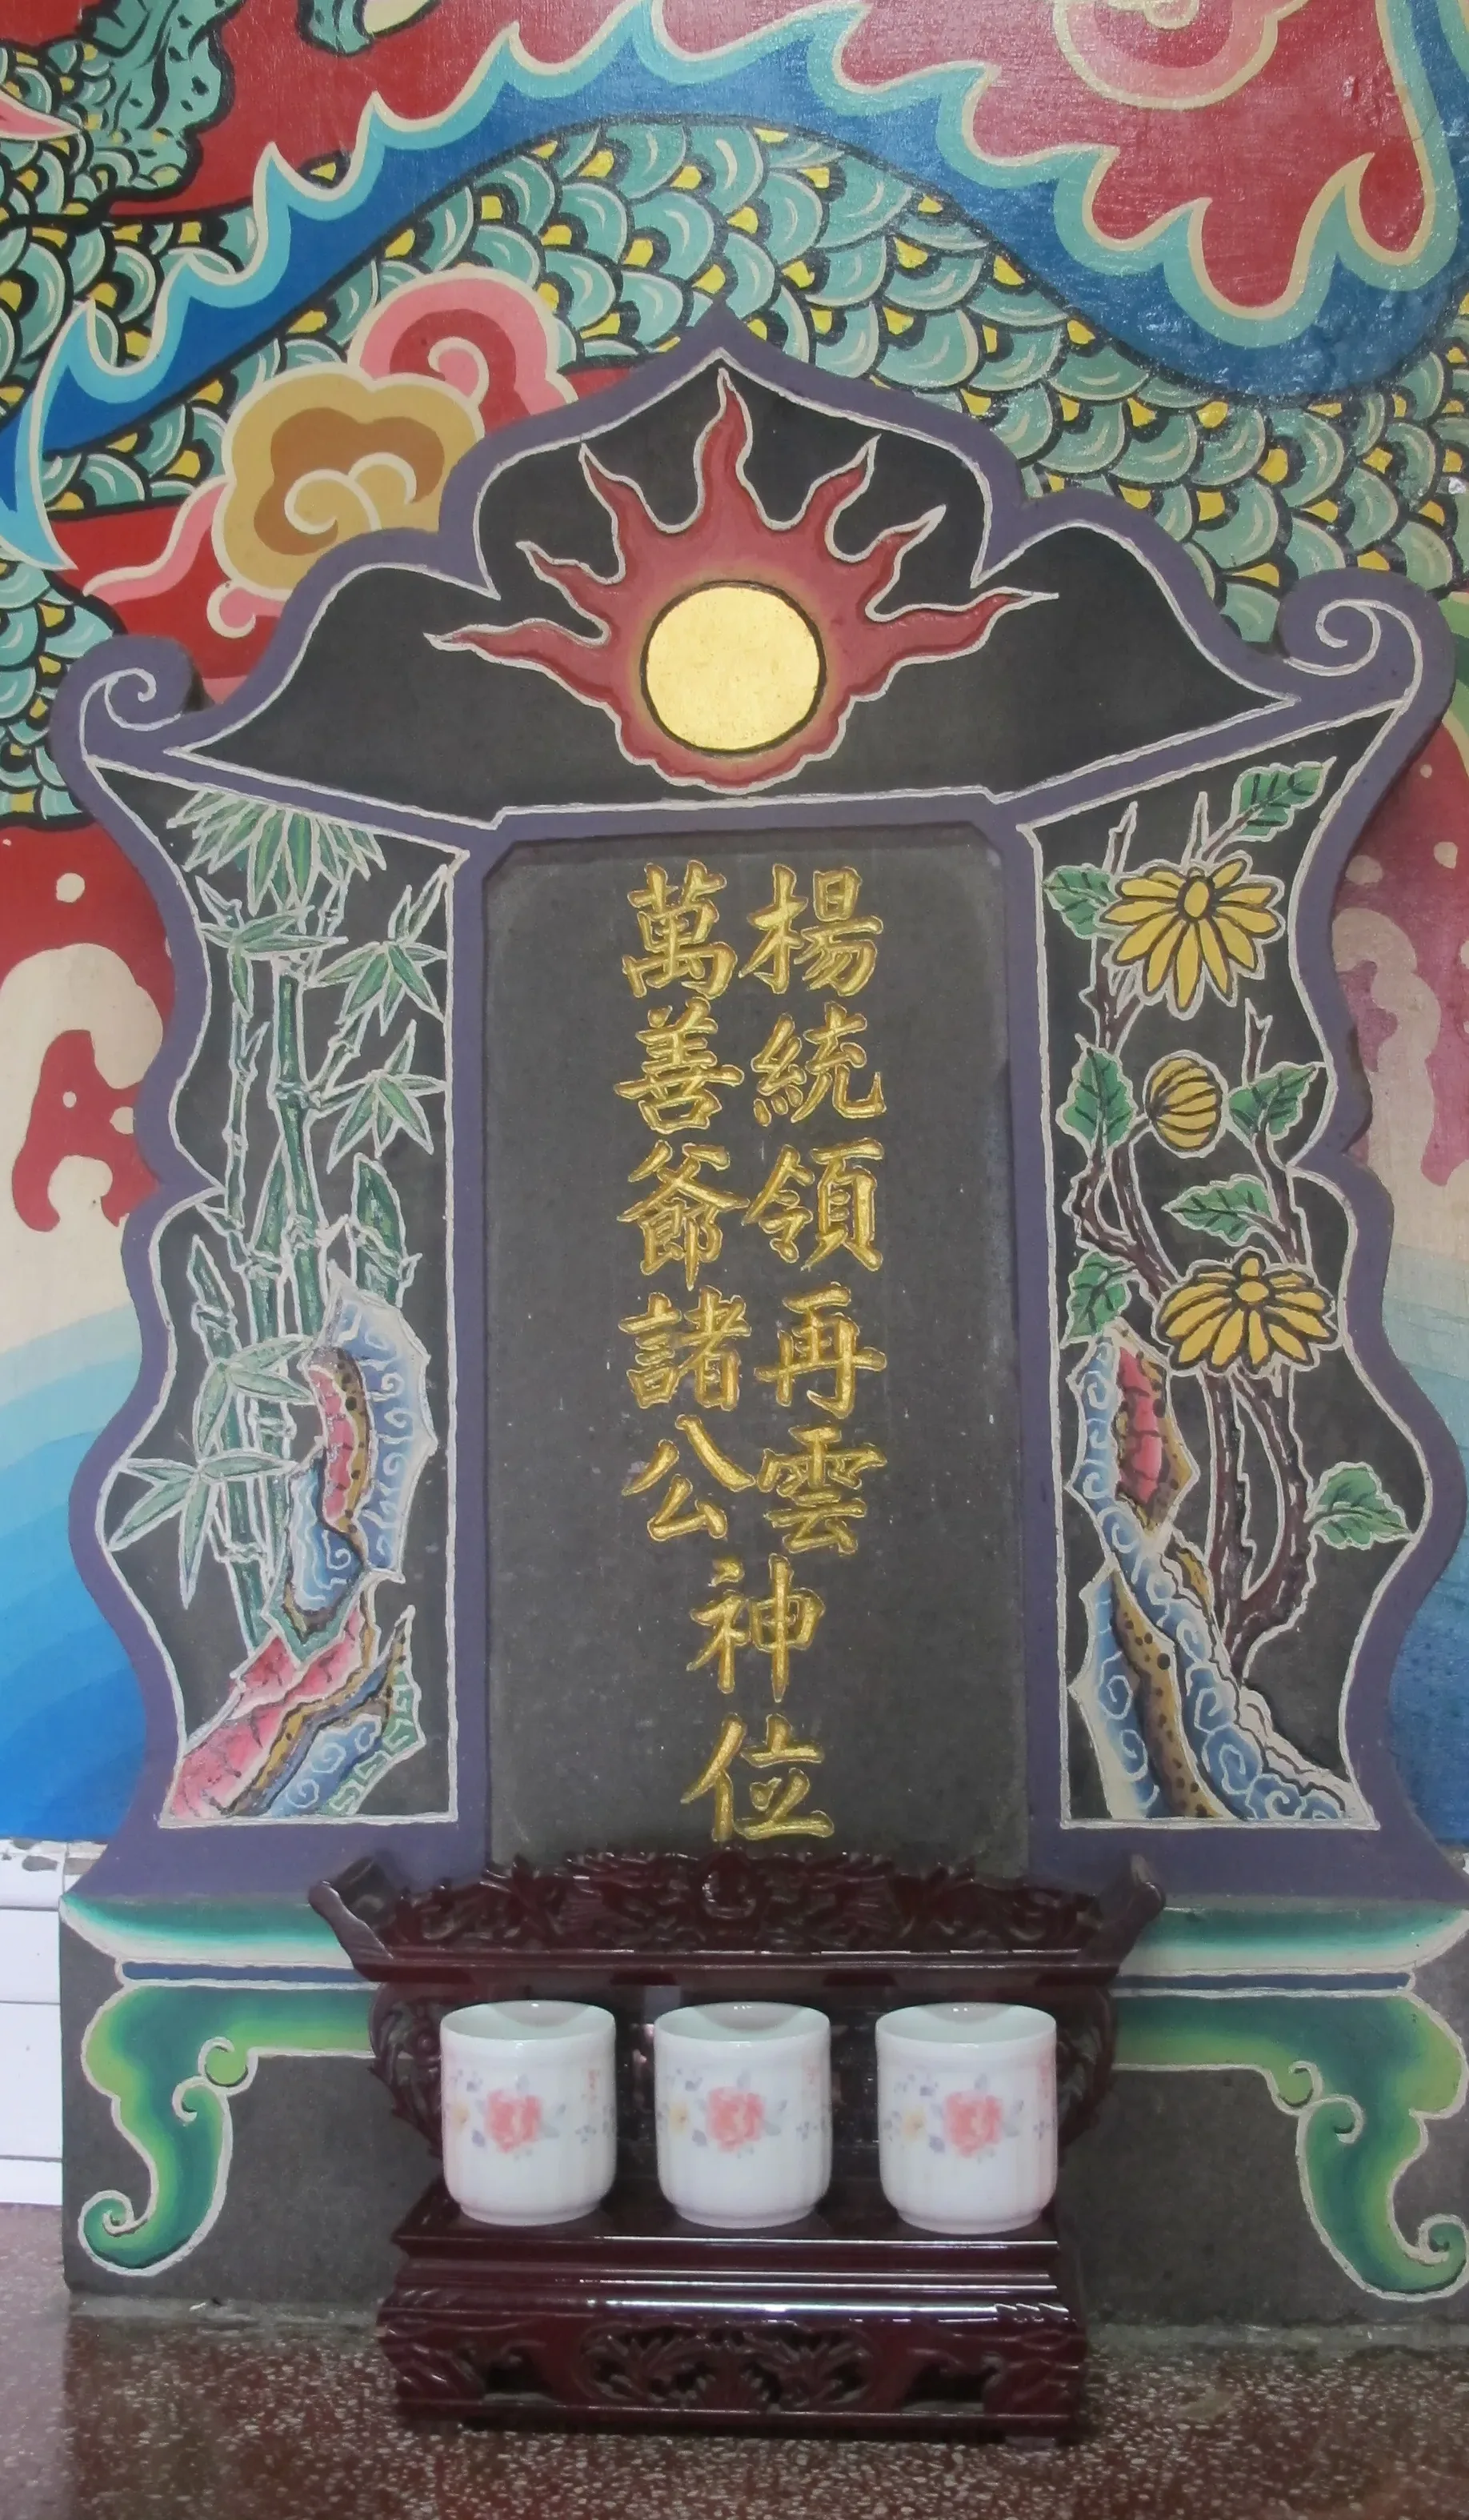 楊統領再雲
萬善爺諸公
神位